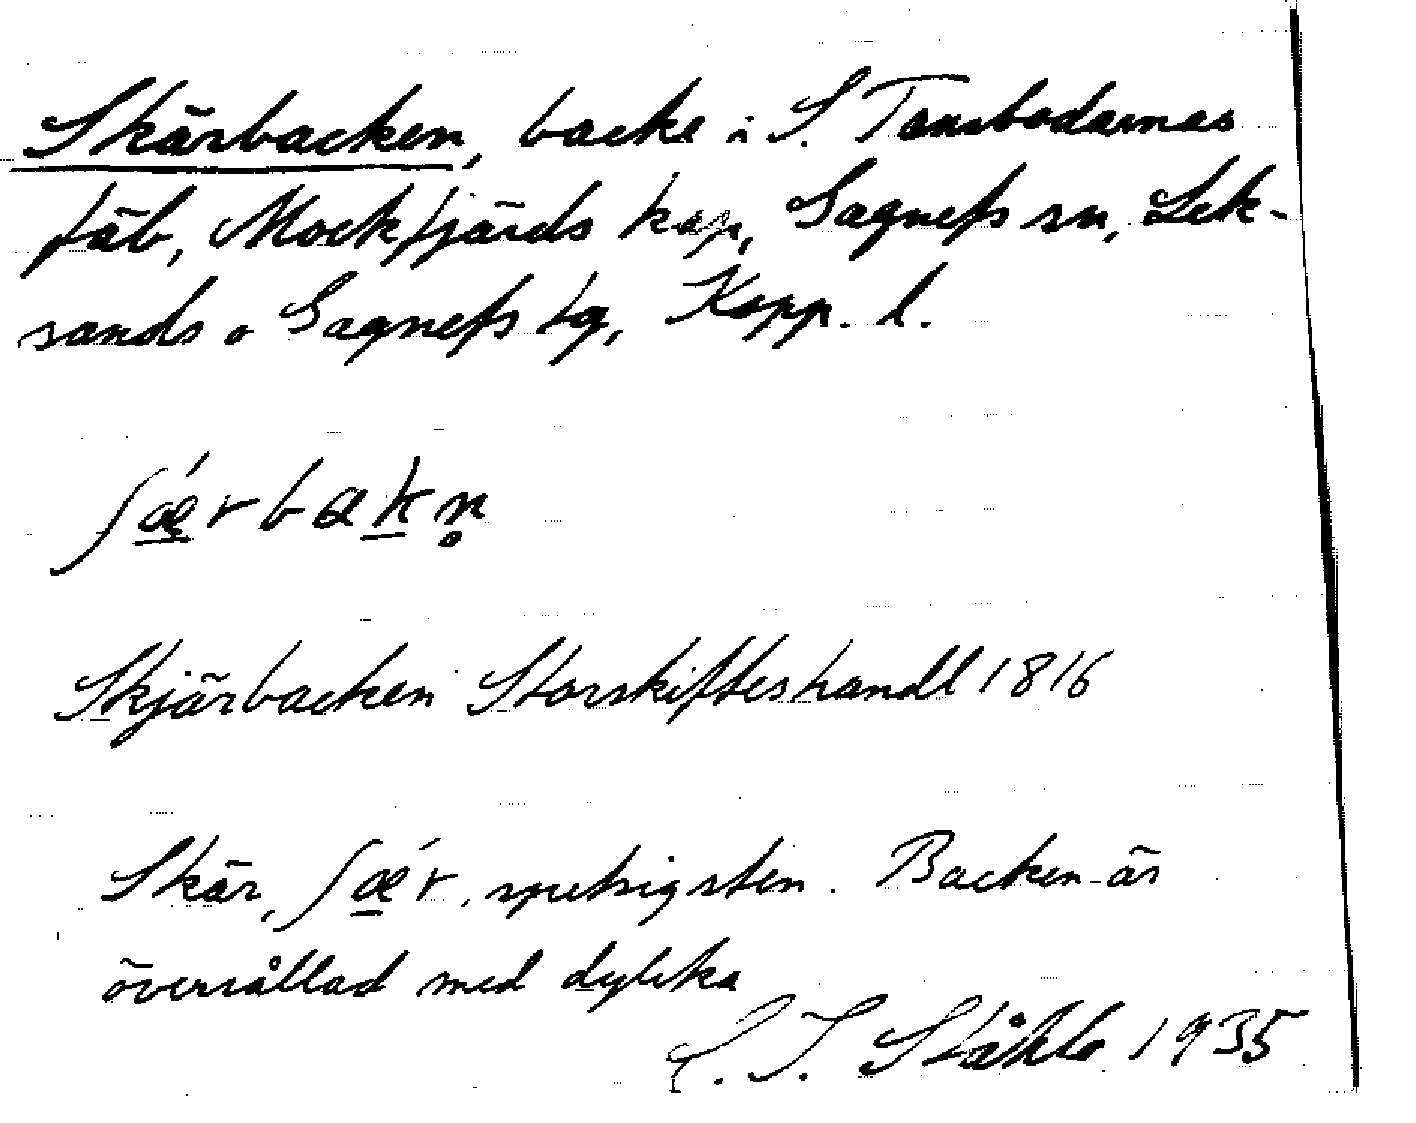 Skärbacken, backe i S. Tansbodarnas
fäb, Mockfjärds kap, Gagnefs sn, Lek-
sands o Gagnefs tg, Kopp. l.
ʃǽrbakn̥
Skjärbacken Storskifteshandl 1816
Skär, ʃǽr, spetsig sten. Backen är
översållad med dylika
C. I. Ståhle 1935